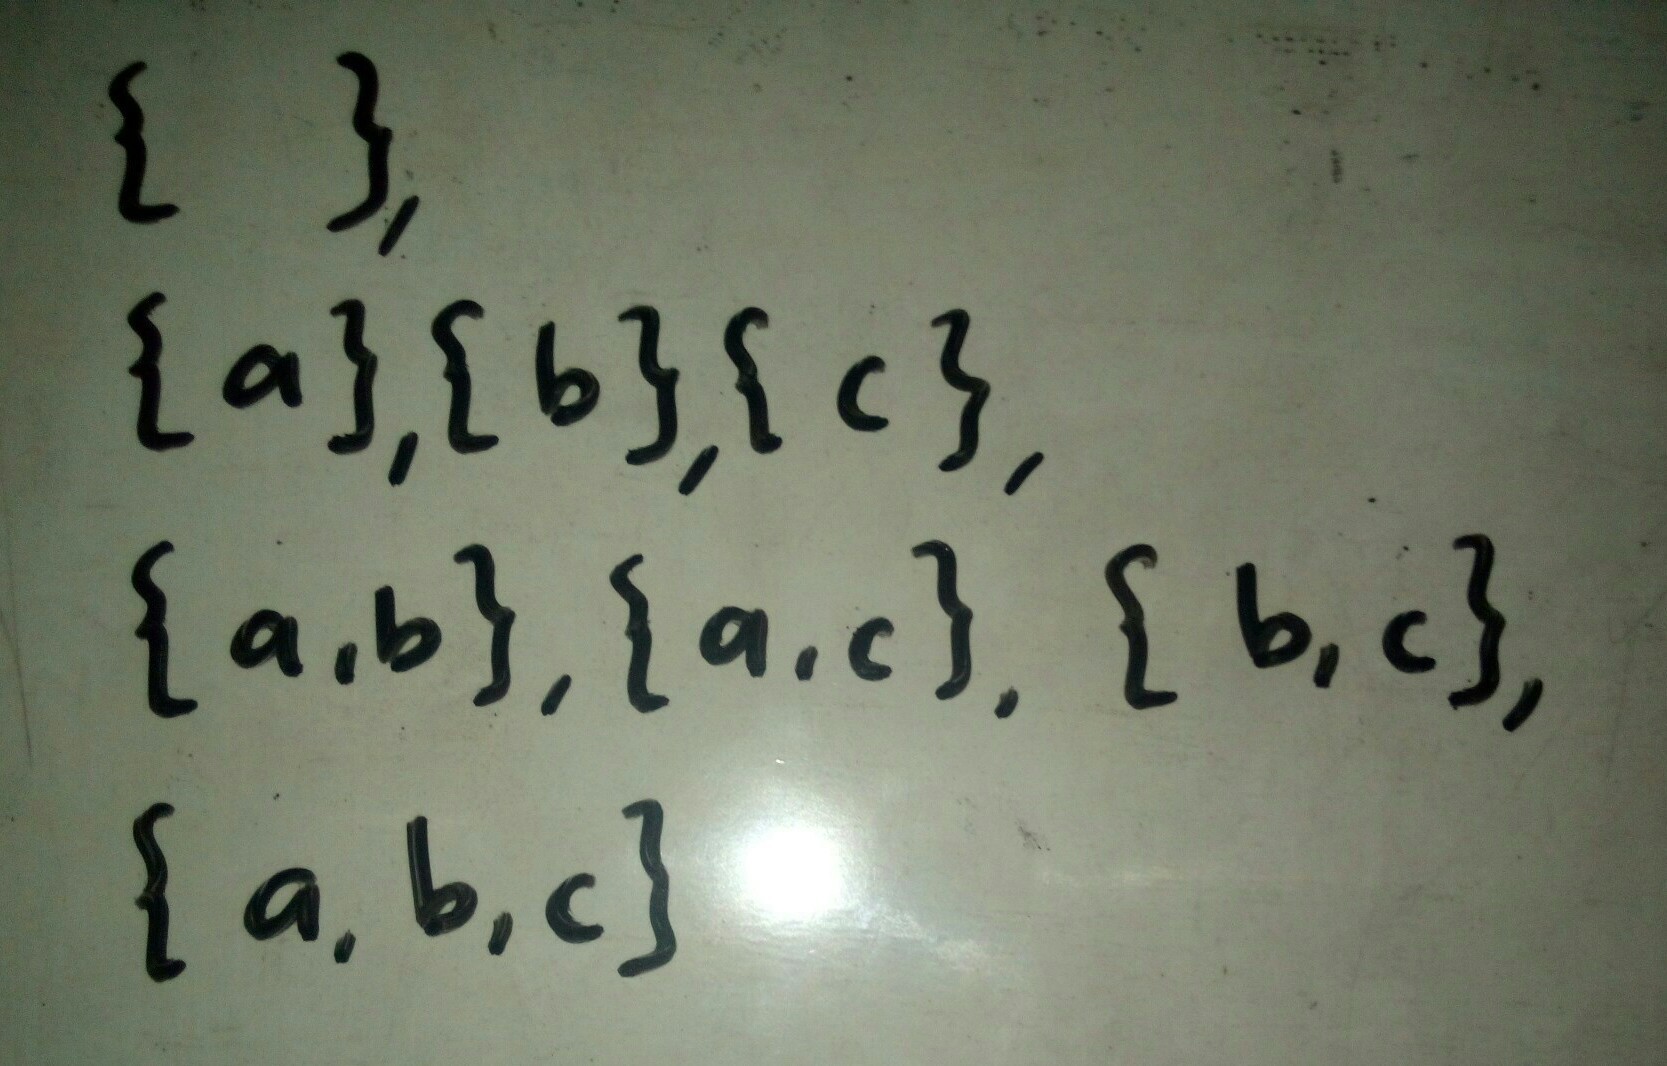 { },
{ a},{ b},{ c},
{ a,b}, { a,c}, { b,c},
{ a, b,c}